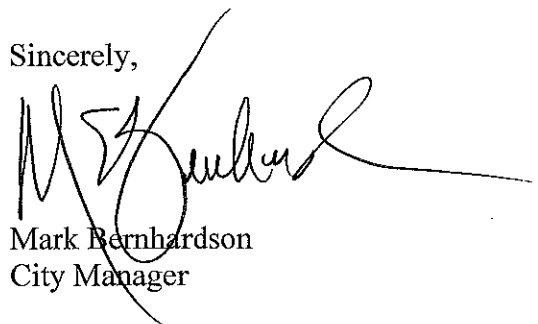 Sincerely,
Mark Bernhardson
City Manager